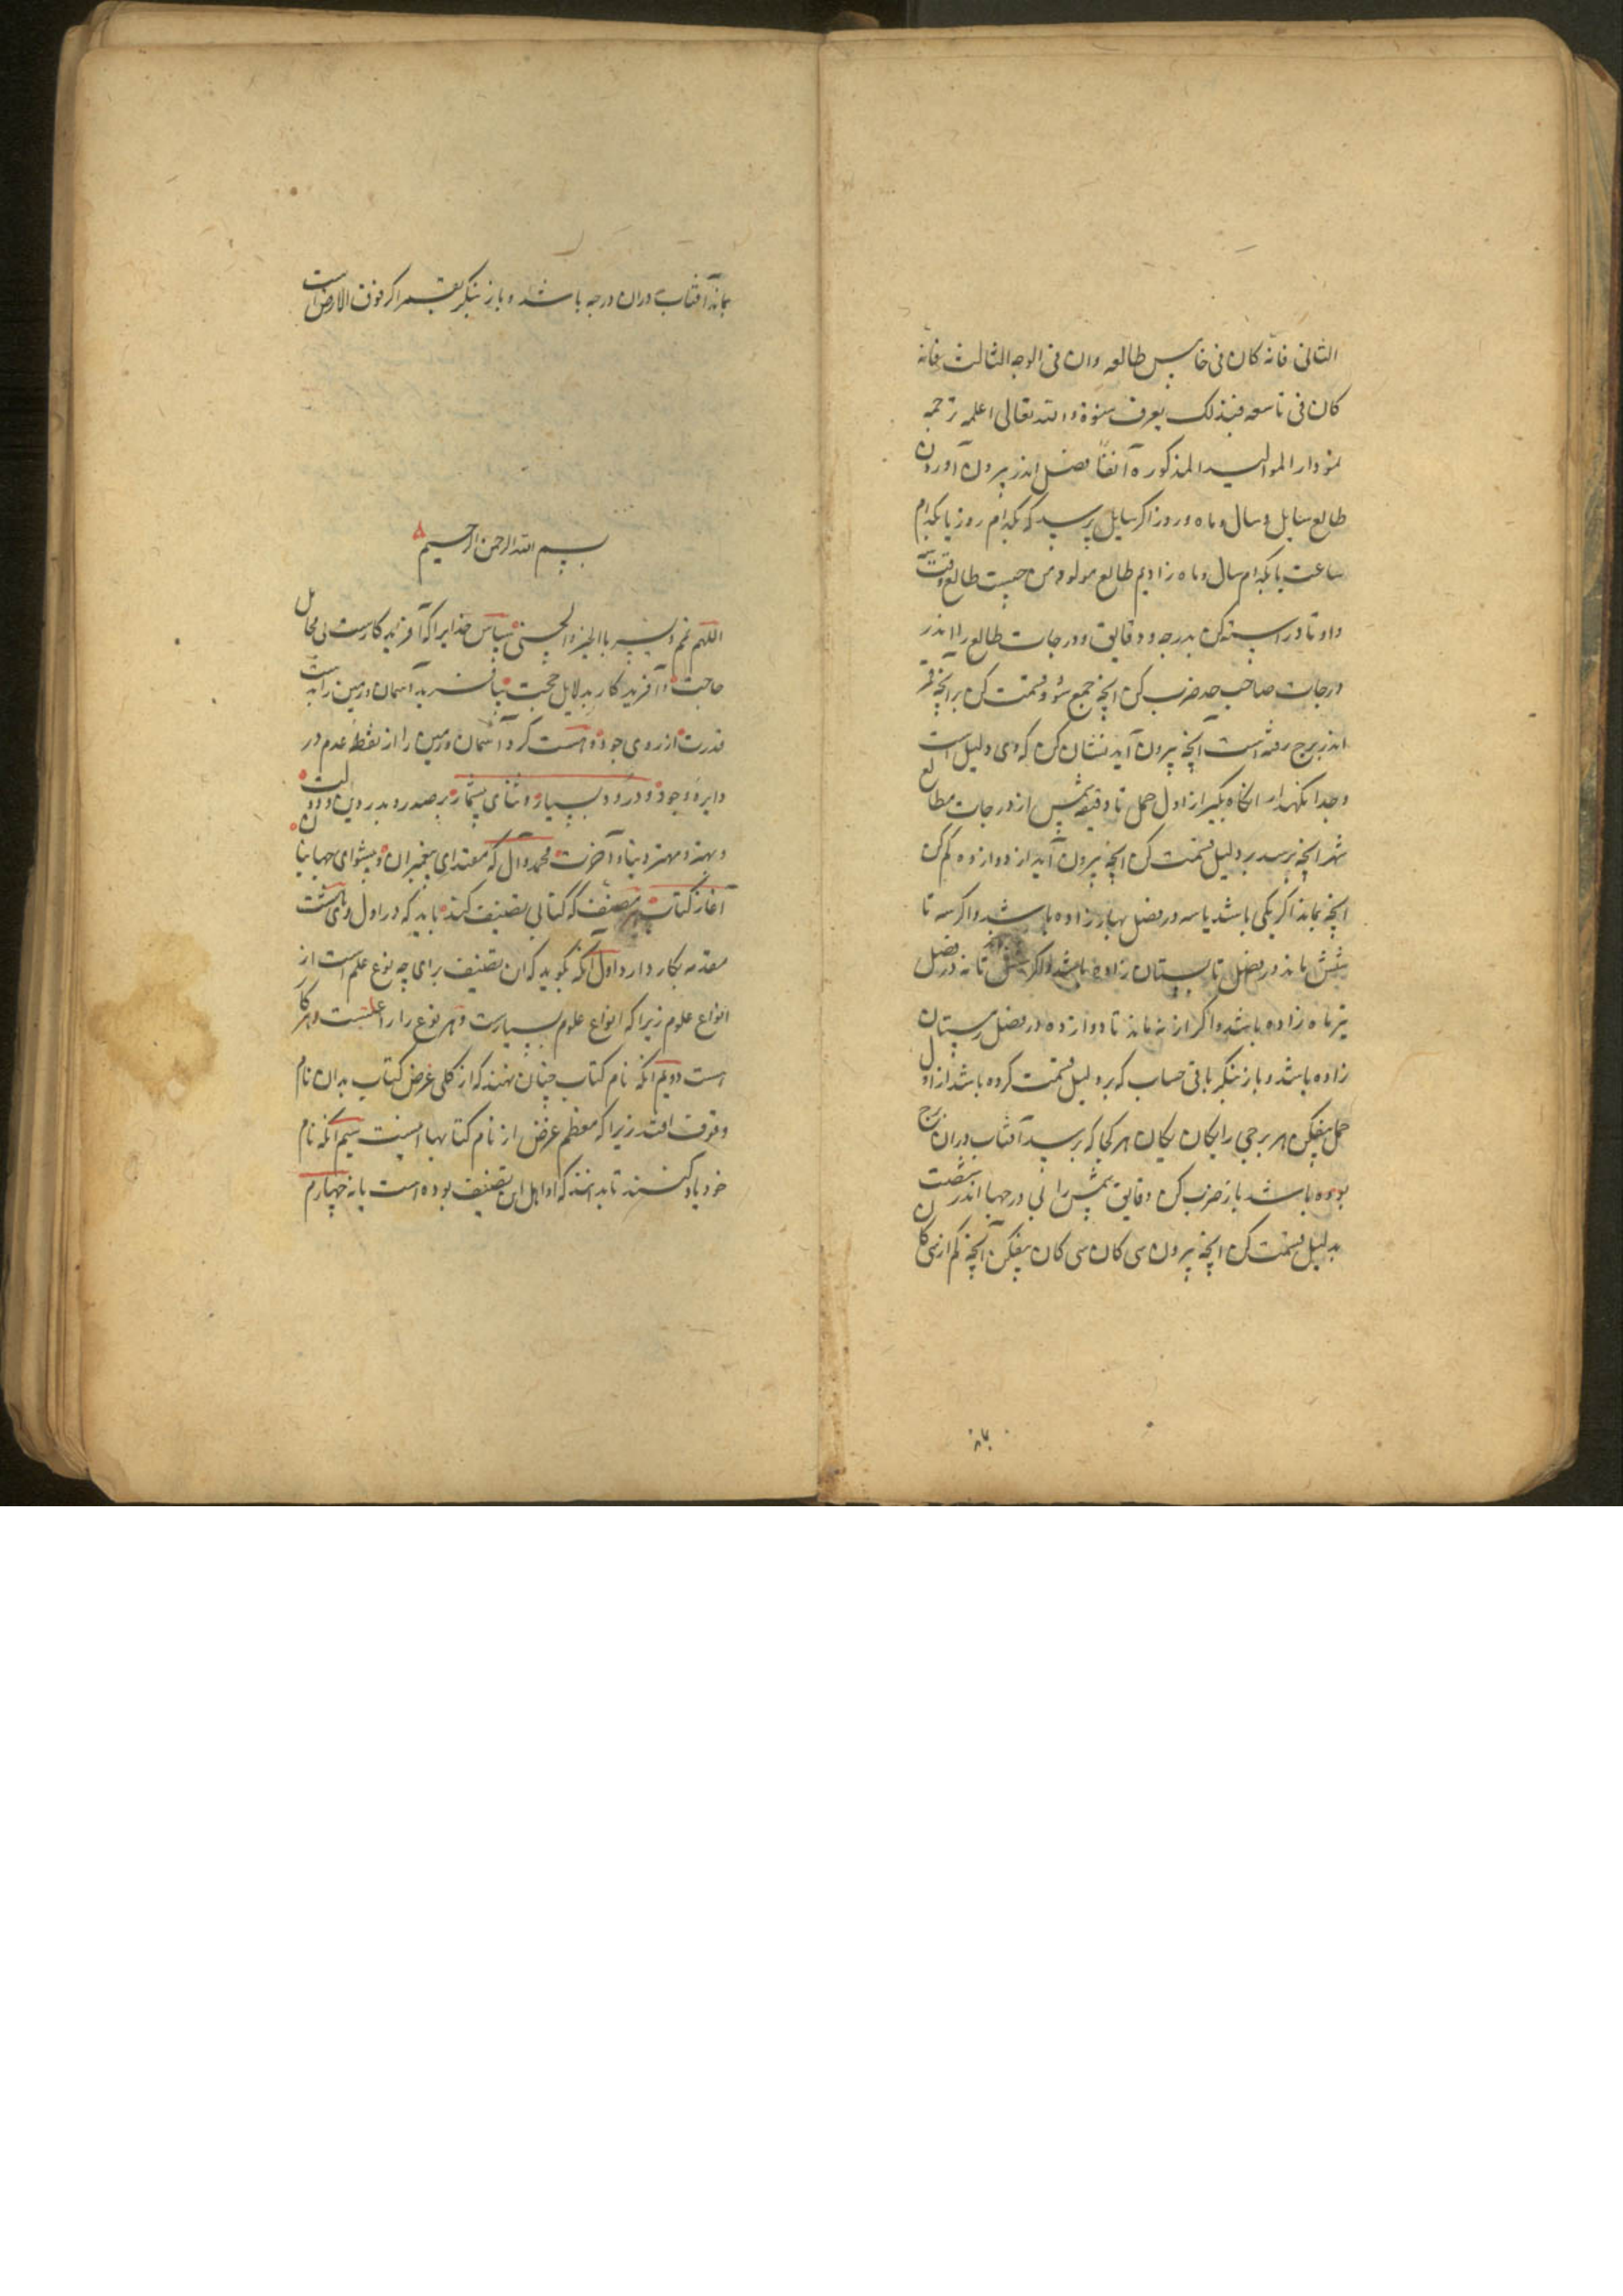 الثانی فانه کان فی خامس طالعه وان فی الوجه الثالث فانه
کان فی تاسعه فبذلک یعرف سنوة والله تعالی اعلم ترجمه
نمودار الموالید المذکورة آنفاً فصل اندر بیرون آوردن
طالع سایل و سال و ماه و روز اگر سایل پرسید که بکدام روز یا بکدام
ساعت یا بکدام سال و ماه زادیم طالع مولود من چیست طالع وقت
داو تا د راست کن بدرجه و دقایق و درجات طالع را اندر
درجات صاحب حد ضرب کن انچه جمع شود قسمت کن بر انچه قمر
اندر برج رفته است انچه بیرون آید نشان کن که وی دلیل است
و جدا نگهدار انگاه بگیر از اول حمل تا دقیقه شمس از درجات مطالع
شهر انچه برسد بر دلیل قسمت کن انچه بیرون آید از دوازده کم کن
انچه بماند اگر یکی باشد یا سه در فصل بهار زاده باشد و اگر سه تا
شش باند در فصل تابستان زاده باشد و اگر شش تا نه در فصل
تیر ماه زاده باشد و اگر از نه ماند تا دوازده در فصل زمستان
زاده باشد و باز بنگر باقی حساب که بر دلیل قسمت کرده باشد از اول
حمل بیفکن هر برجی را یکان یکان هر کجا که برسد آفتاب دران برج
بوده باشد باز ضرب کن دقایق شمس را بی درجها اندر شصت
بدلیل قسمت کن انچه بیرون سی کان سی کان بیفکن آنچه کم از سی کان
۸۷
بماند آفتاب دران درجه باشد و باز بنگر بقمر اگر فوق الارض است
بسم الله الرحمن الرحیم
اللهم تمم و یسر بالخیر والحسنی سپاس خدایرا که آفریدکارست بی محابل
حاجت و آفریدکار بدلایل حجت بیافرید آسمان و زمین را بدست
قدرت از روی جود و هست کرد آسمان و زمین را از نقطه عدم در
دایره وجود و درود بسیار و ثنای بیشمار بر صدر و بدر دین و دولت
و بهتر و مهتر دنیا و آخرت محمد و آل که مقتدای پیغمبران و پیشوای جهانیان
آغاز کتاب هر مصنف که کتابی تصنیف کند باید که در اول وی هشت
مقدمه بکار دارد اول آنکه بگوید که ان تصنیف برای چه نوع علم است از
انواع علوم زیرا که انواع علوم بسیارست و هر نوع را راغبست و هر کا
است دویم آنکه نام کتاب چنان نهند که از کلی غرض کتاب بدان نام
وقوف افتد زیرا که معظم غرض از نام کتابها اینست سیم آنکه نام
خود یاد کنند تا بدانند که او اهل این تصنیف بوده است یا نه چهارم